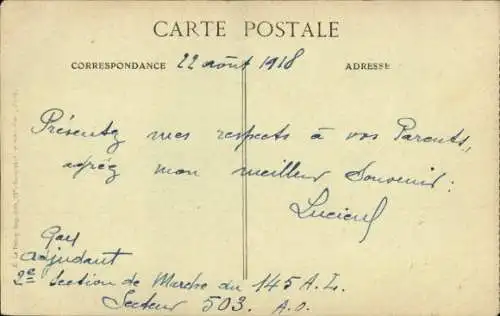 CARTE POSTALE
CORRESPONDANCE 22 août 1918 ADRESSE
Présentez mes respects à vos Parents,
agréez mon meilleur Souvenir :
Lucien
adjudant
2e Section de Marche du 145 A. L.
Secteur 503. A. O.